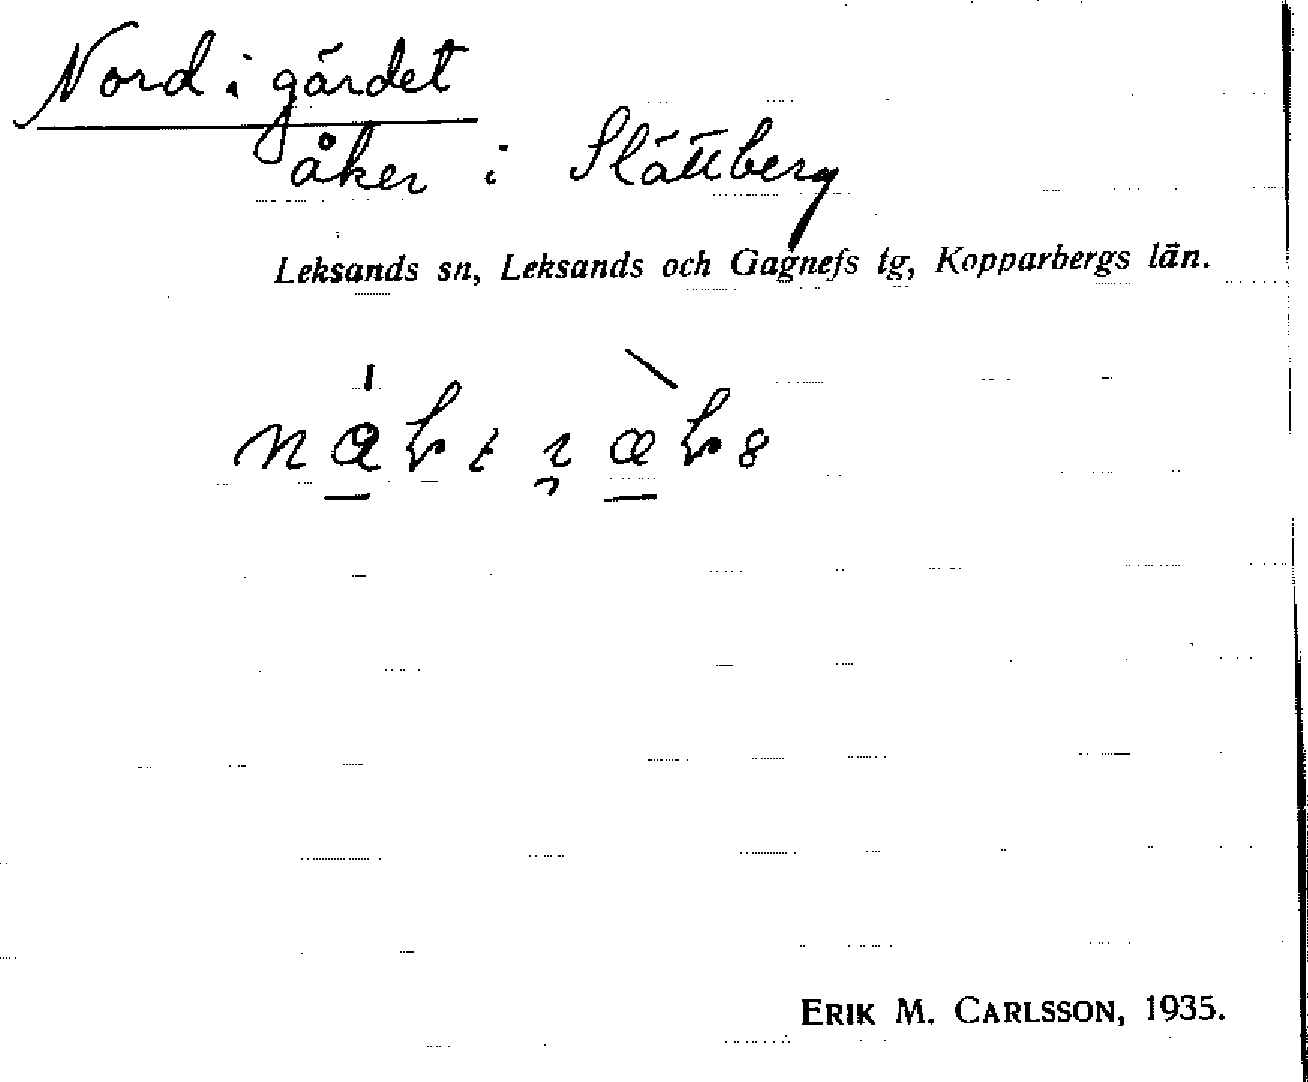 Nord i gärdet
åker i Slättberg
Leksands sn, Leksands och Gagnefs tg, Kopparbergs län.
ERIK M. CARLSSON, 1935.